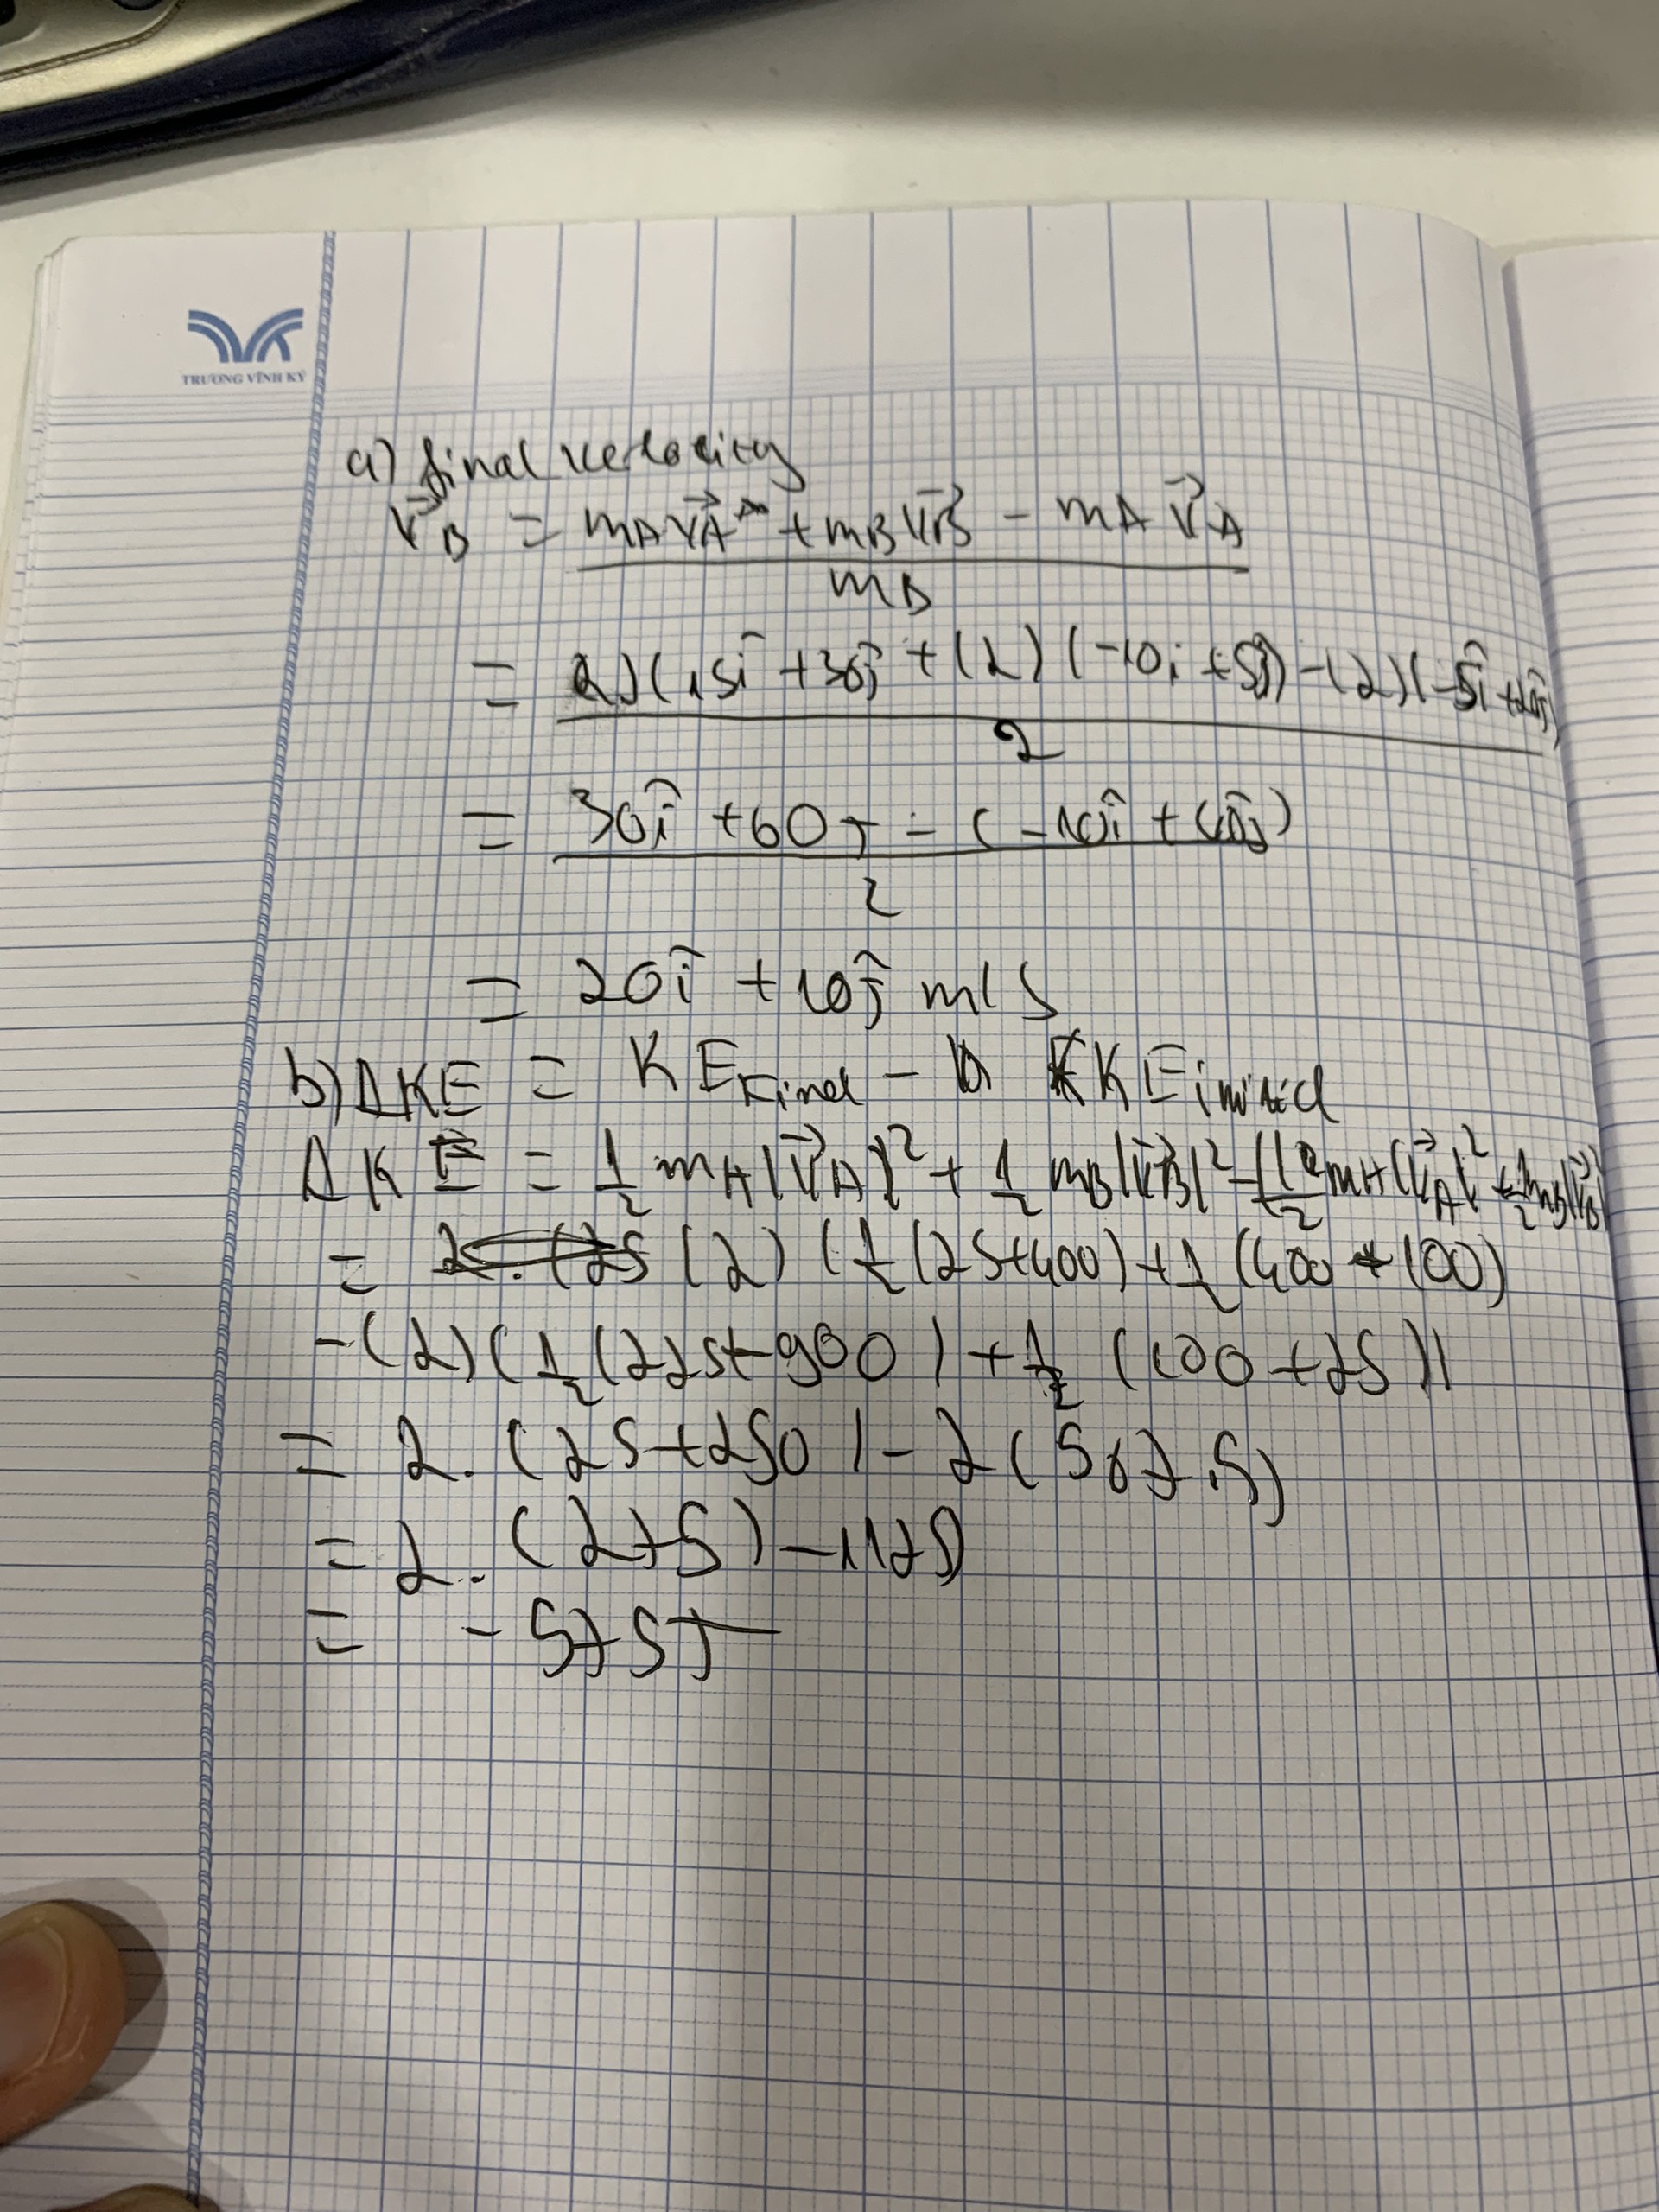 TRƯƠNG VĨNH KÝ
a) final velocity
V⃗B = mAV⃗A + mBV⃗B - mA V⃗A
mB
= (2)(15î + 30ĵ + (2)(-10i + 5ĵ) - (2)(-5î + 20ĵ)
2
= 30î + 60j - (-10î + 40ĵ)
2
= 20î + 10ĵ m/s
b) ΔKE = KE Final - KE initial
ΔKE = 1/2 mA|V⃗A|² + 1/2 mB|V⃗B|² - (1/2 mA|V⃗A|² + 1/2 mB|V⃗B|
= (2) (1/2 (25+400) + 1/2 (400 + 100)
- (2) (1/2 (225+900) + 1/2 (100 + 25))
= 2. (25+250) - 2 (567.5)
= 2. (275) - 1125
= - 575J